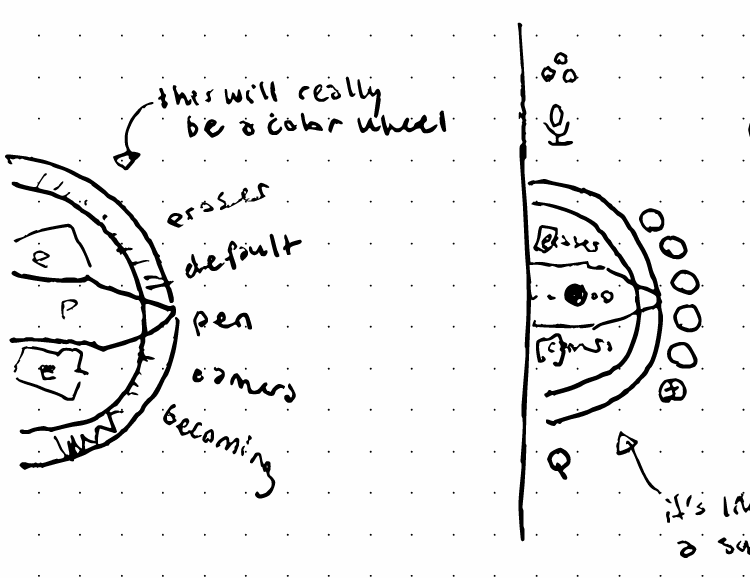 this will really
be a color wheel
eraser
default
pen
camera
becoming
e
P
E
eraser
camera
it's
a